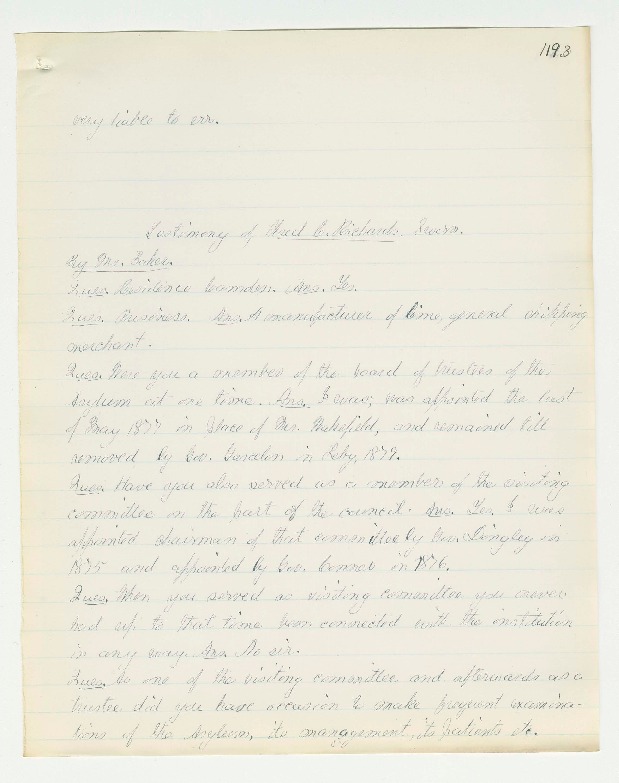 1193
very liable to err.
Testimony of Fred E. Richards. Sworn.
By Mr. Baker.
Ques. Residence Camden. Ans. Yes.
Ques. Business. Ans. A manufacturer of lime, general shipping
merchant.
Ques. Were you a member of the board of trustees of this
asylum at one time. Ans. I was, was appointed the last
of May 1877 in place of Mr. Wakefield, and remained till
removed by Gov. Garcelon in Feby, 1879.
Ques. Have you also served as a member of the visiting
committee on the part of the council. Ans. Yes, I was
appointed chairman of that committee by Gov. Dingley in
1875 and appointed by Gov. Connor in 1876.
Ques. When you served as visiting committee you never
had up to that time been connected with the institution
in any way. Ans. No sir.
Ques. As one of the visiting committee and afterwards as a
trustee did you have occasion to make frequent examina-
tions of the asylum, its management, its patients etc.